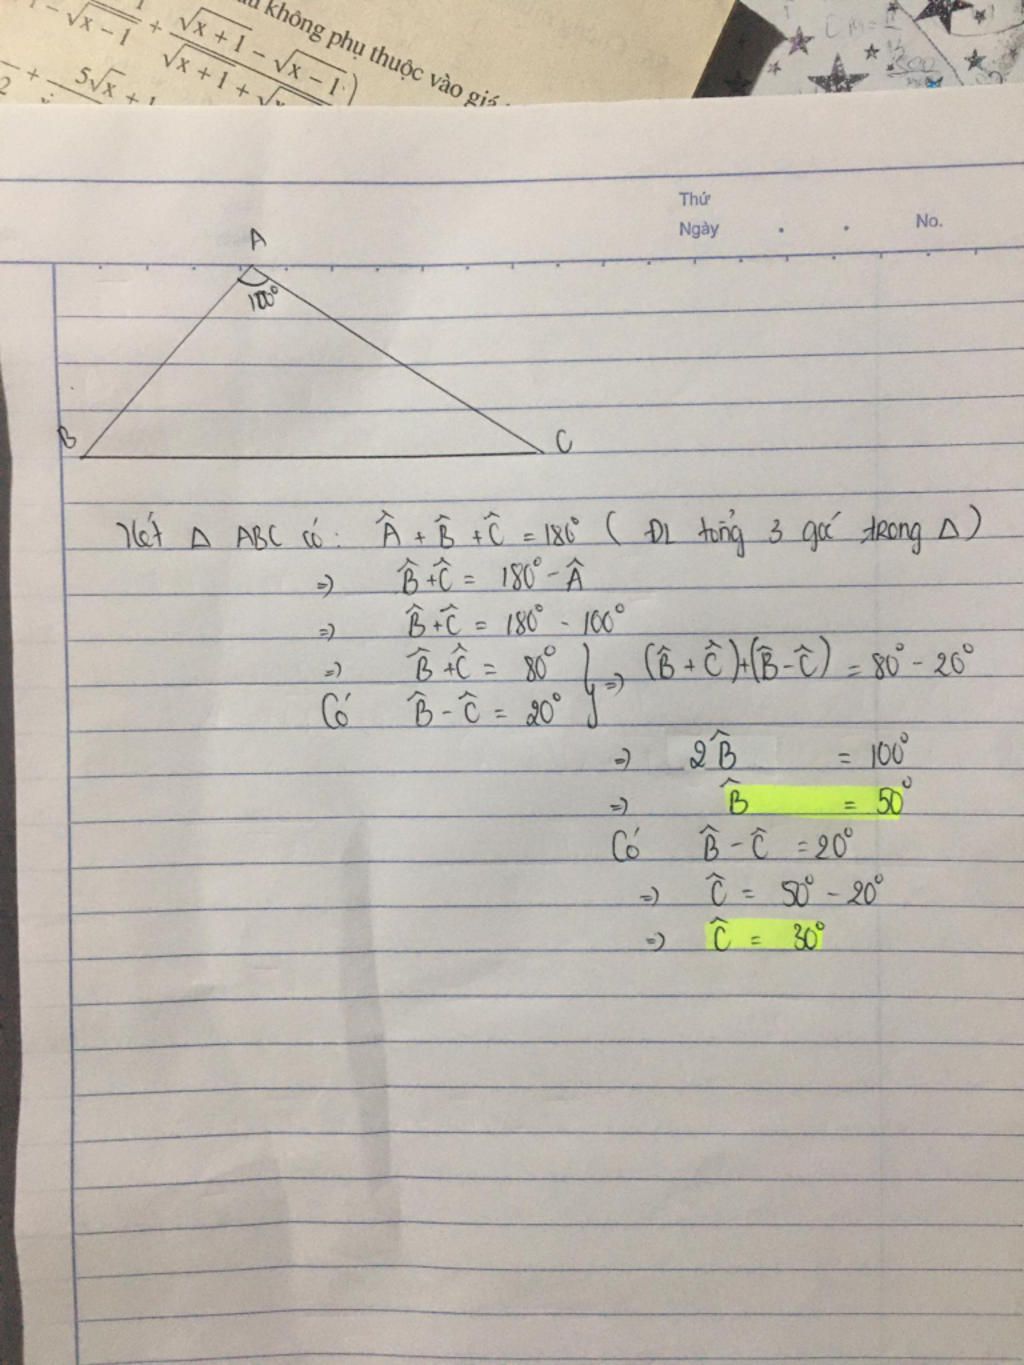 1 - √x-1 + √x+1 - √x-1)
√x+1 + √x
không phụ thuộc vào giá
2 + 5√x + 1
Thứ
Ngày . . No.
A
100°
B
C
Xét Δ ABC có: Â + B̂ + Ĉ = 180° ( ĐL tổng 3 góc trong Δ )
=) B̂ + Ĉ = 180° - Â
=) B̂ + Ĉ = 180° - 100°
=) B̂ + Ĉ = 80° } =) (B̂ + Ĉ) + (B̂ - Ĉ) = 80° - 20°
Có B̂ - Ĉ = 20°
=) 2B̂ = 100°
=) B̂ = 50°
Có B̂ - Ĉ = 20°
=) Ĉ = 50° - 20°
=) Ĉ = 30°